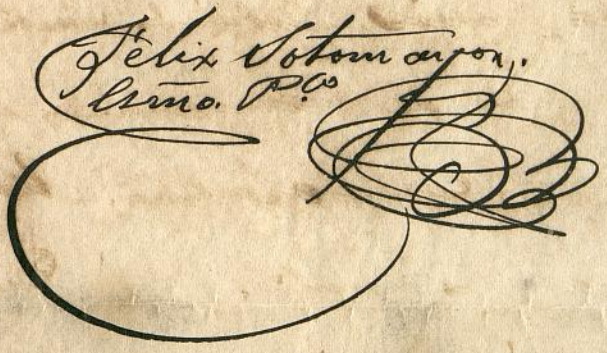 Félix Sotomayor.
Esno. Pco